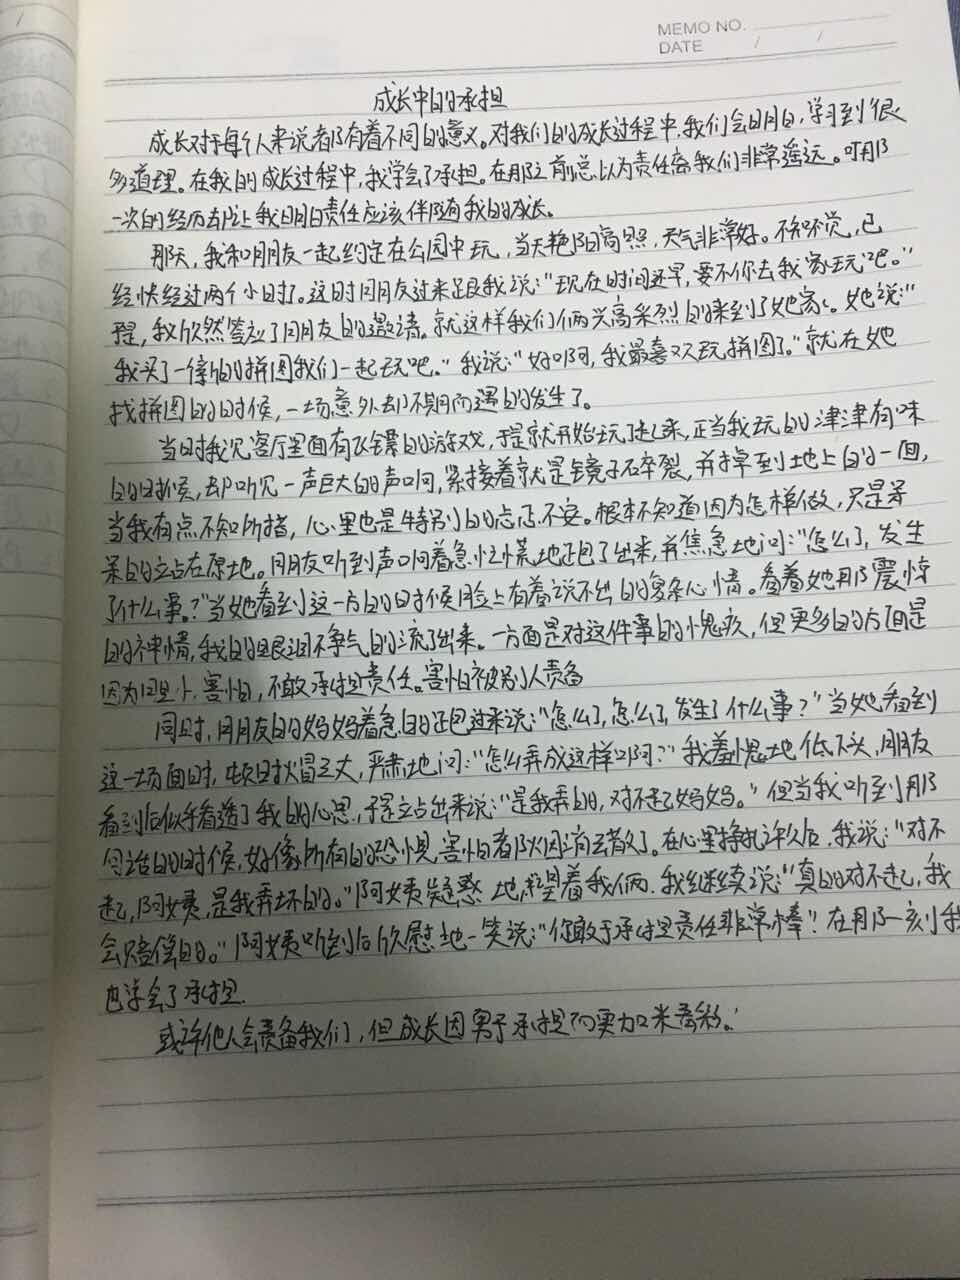 MEMO NO.
DATE / /
成长中的承担
成长对于每个人来说都有着不同的意义。对我们的成长过程中,我们会明白,学习到很
多道理。在我的成长过程中,我学会了承担。在那之前总以为责任离我们非常遥远。可那
一次的经历却让我明白责任应该伴随我的成长。
那天,我和朋友一起约定在公园中玩,当天艳阳高照,天气非常好。不知不觉,已
经快经过两个小时了。这时朋友过来跟我说:“现在时间还早,要不你去我家玩吧。”
于是,我欣然答应了朋友的邀请。就这样我们俩兴高采烈的来到了她家。她说:“
我买了一箱的拼图我们一起玩吧。”我说:“好啊,我最喜欢玩拼图了。”就在她
找拼图的时候,一场意外却不期而遇的发生了。
当时我见客厅里面有飞镖的游戏,于是就开始玩了起来,正当我玩的津津有味
的时候,却听见一声巨大的声响,紧接着就是镜子碎裂,并掉到地上的一面,
当我有点不知所措,心里也是特别的忐忑不安。根本不知道因为怎样做,只是呆
呆的立站在原地。朋友听到声响着急忙慌地跑了出来,并焦急地问:“怎么了,发生
了什么事?”当她看到这一方的时候脸上有着说不出的复杂心情。看着她那震惊
的神情,我的眼泪不争气的流了出来。一方面是对这件事的愧疚,但更多的方面是
因为胆小,害怕,不敢承担责任。害怕被别人责备
同时,朋友的妈妈着急的跑过来说:“怎么了,怎么了,发生了什么事?”当她看到
这一场面时,顿时火冒三丈,严肃地问:“怎么弄成这样啊?”我羞愧地低下头,朋友
看到后似乎看透了我的心思,于是立站出来说:“是我弄的,对不起妈妈。”但当我听到那
句话的时候,好像所有的恐惧,害怕都烟消云散了。在心里挣扎许久后,我说:“对不
起,阿姨,是我弄坏的。”阿姨疑惑地望着我俩,我继续说:“真的对不起,我
会赔偿的。”阿姨听到后欣慰地一笑说:“你敢于承担责任非常棒!在那一刻我
也学会了承担.
或许他人会责备我们,但成长因勇于承担而更加米青彩.